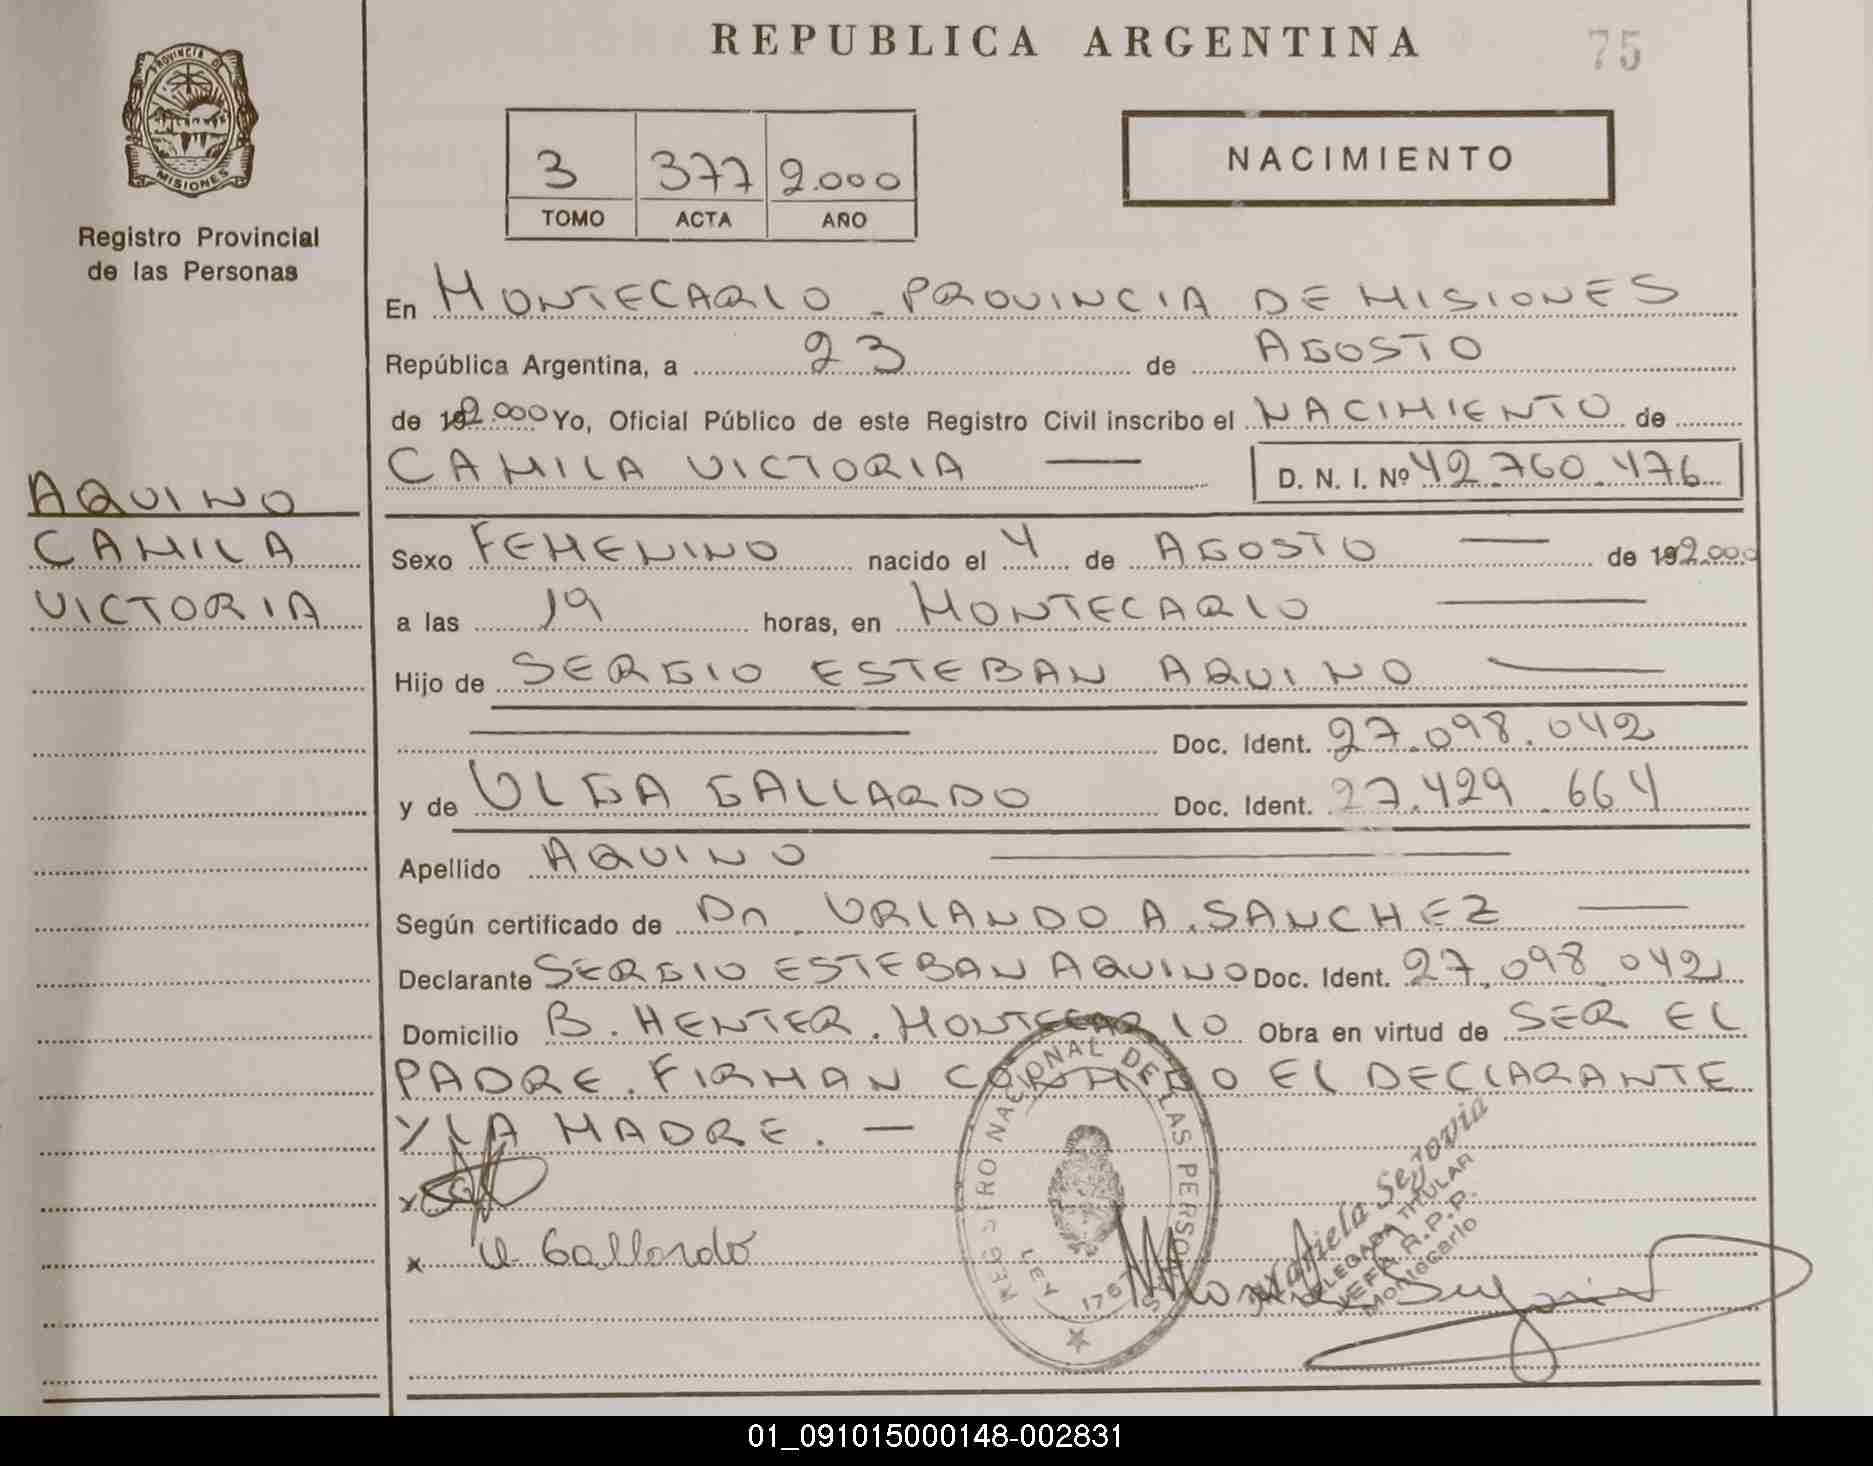 REPUBLICA ARGENTINA
75
PROVINCIA D
MISIONES
Registro Provincial
de las Personas
3 377 2.000
TOMO ACTA AÑO
NACIMIENTO
En MONTECARLO - PROVINCIA DE MISIONES
República Argentina, a 23 de AGOSTO
de 192.000 Yo, Oficial Público de este Registro Civil inscribo el NACIMIENTO de
CAMILA VICTORIA — D. N. I. Nº 42.760.476
AQUINO
CAMILA
VICTORIA
Sexo FEMENINO nacido el 4 de AGOSTO — de 192.000
a las 19 horas, en MONTECARLO —
Hijo de SERGIO ESTEBAN AQUINO —
— Doc. Ident. 27.098.042
y de OLGA GALLARDO Doc. Ident. 27.429.664
Apellido AQUINO —
Según certificado de Dr. ORLANDO A. SANCHEZ —
Declarante SERGIO ESTEBAN AQUINO Doc. Ident. 27.098.042
Domicilio B. HENTER. MONTECARLO Obra en virtud de SER EL
PADRE. FIRMAN CONMIGO EL DECLARANTE
Y LA MADRE. —
x
x O Gallardo
REGISTRO NACIONAL DE LAS PERSONAS
LEY 1767
Segovia
DELEGADA TITULAR
JEFA R.P.P.
Montecarlo
01_091015000148-002831